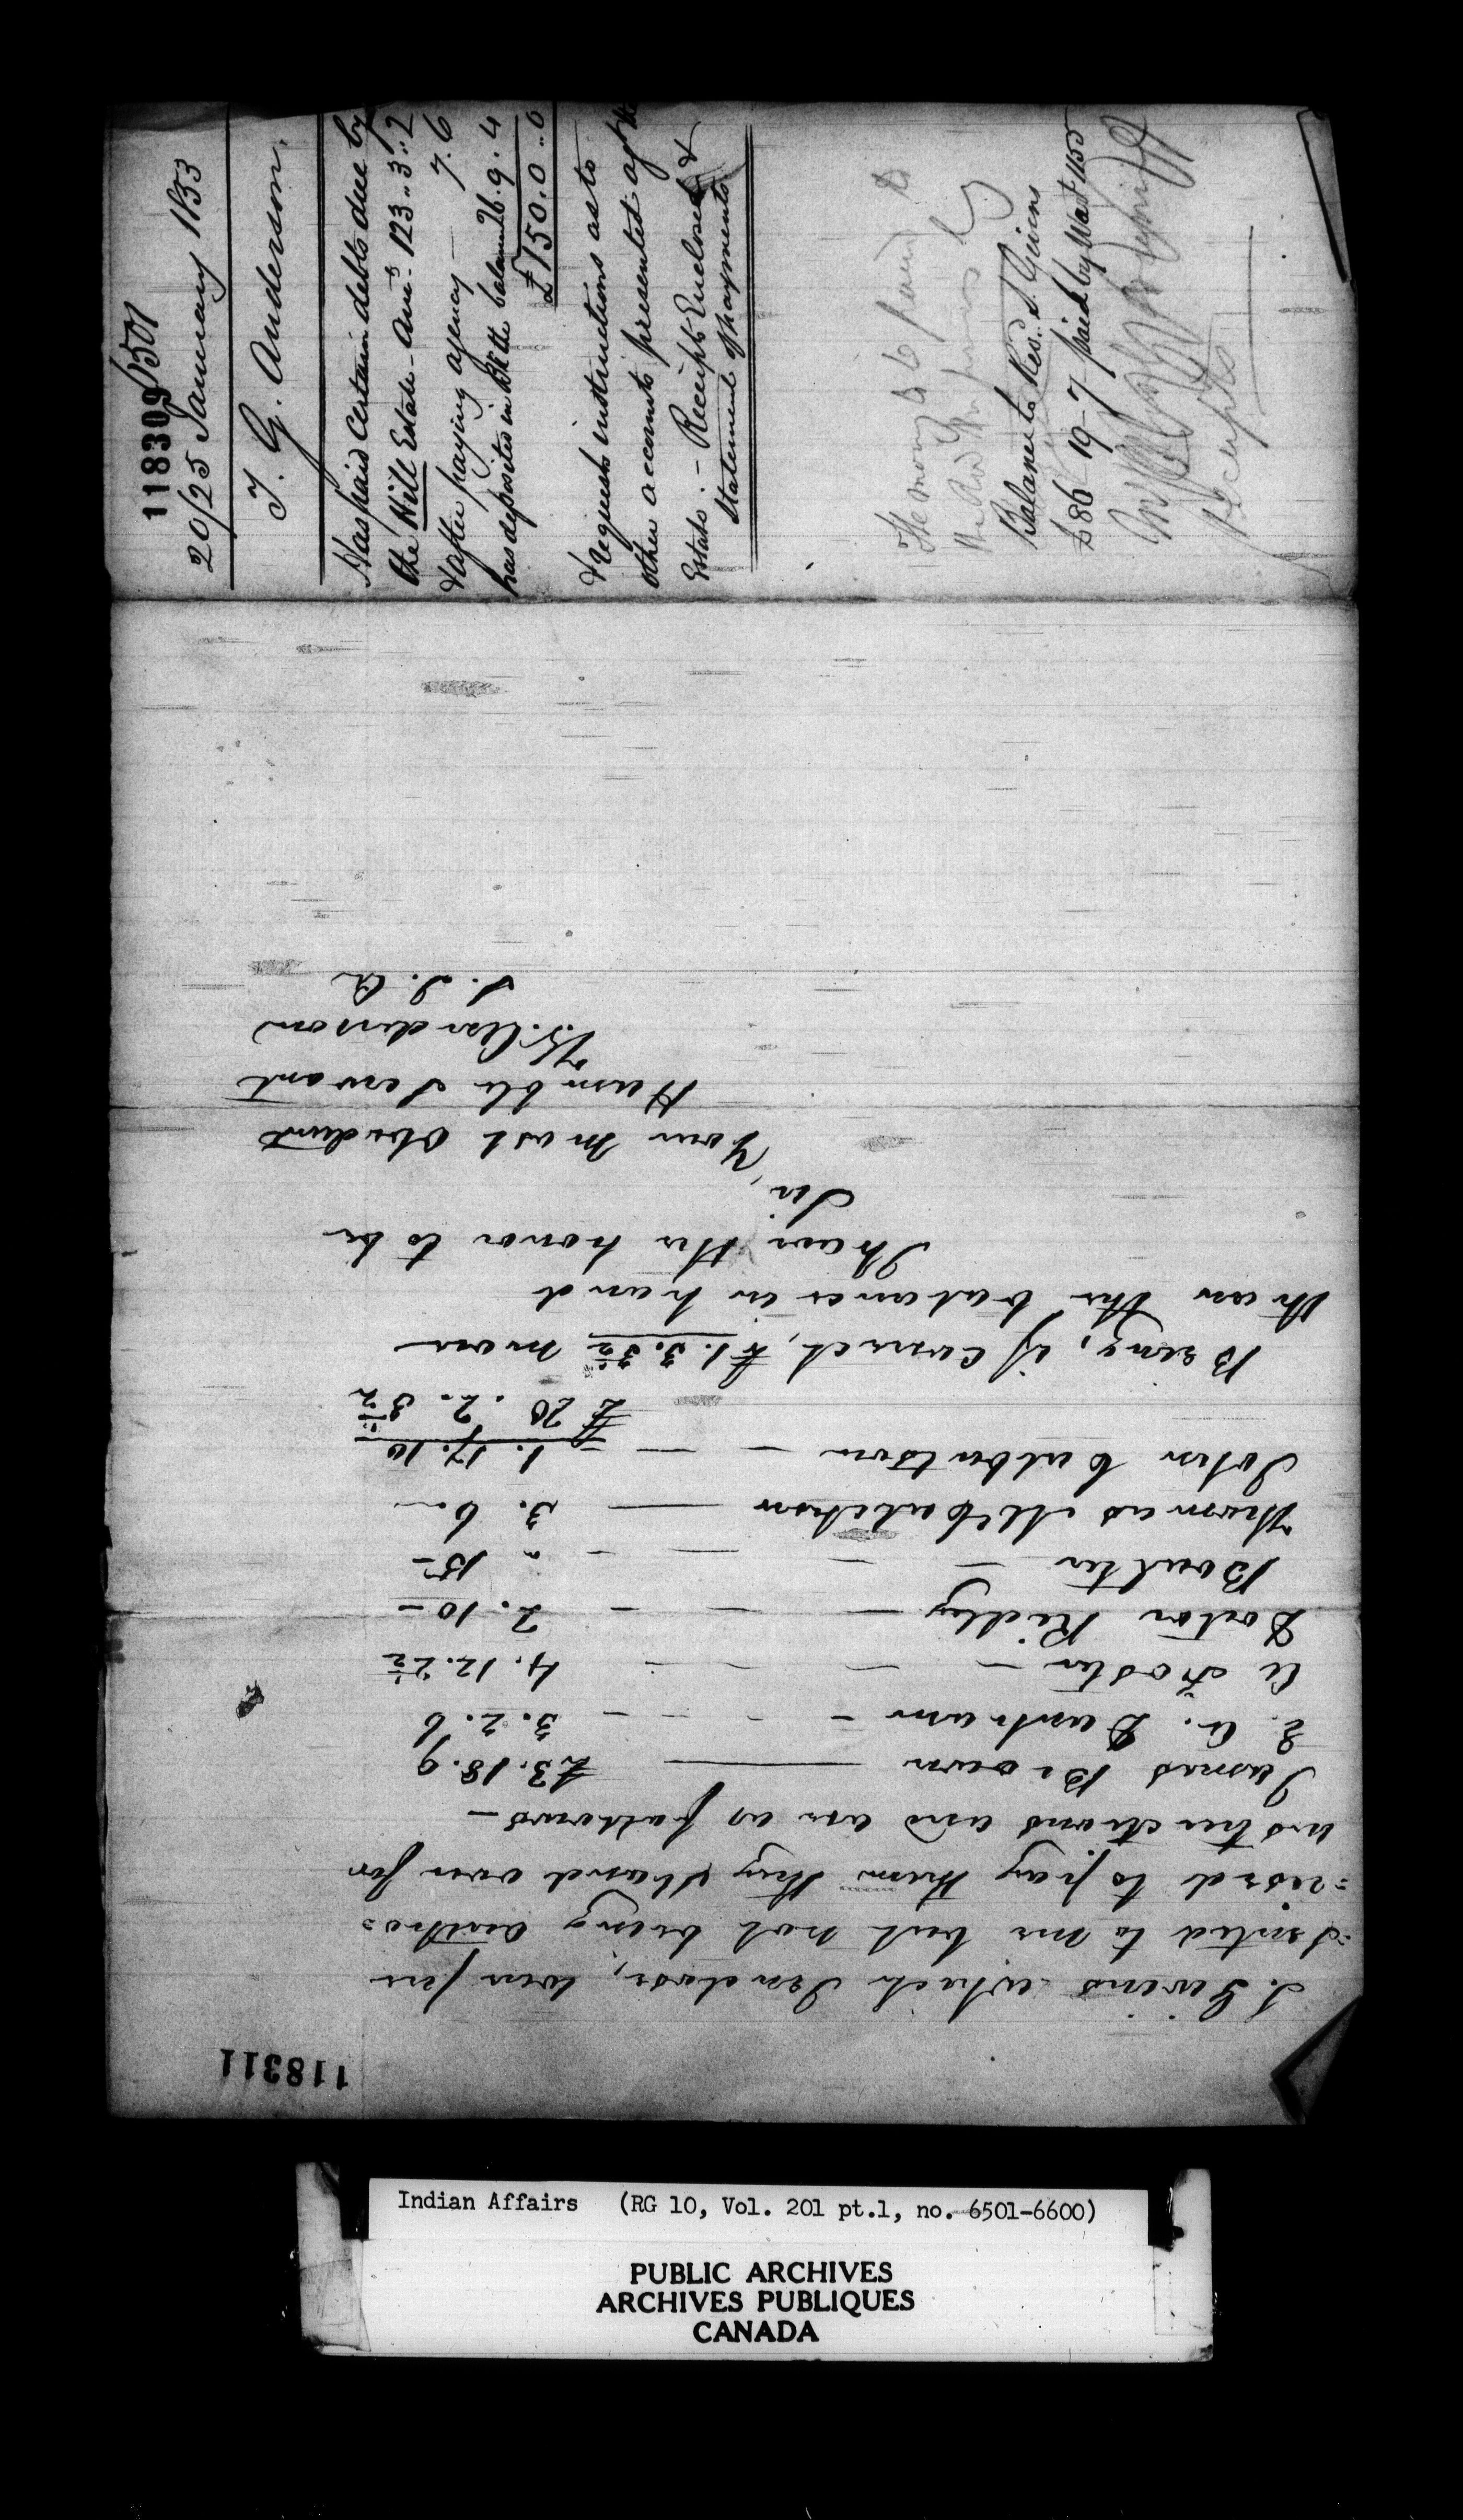 118309/501
20/25 January 1853
T. G. Anderson.
Has paid Certain debts due by
the Hill Estate. Amt. 123..3..2
& after paying agency — 7.6
has deposited in Bk the balance 26.9.4
£150.0..0
& requests instructions as to
other accounts presented agst the
Estate. — Receipts Enclosed &
Statement of payments
The money to be paid to
Balance to Revd. S. Givins
£86 19-7 paid by Wart 1155
Receipts
118311
S. Givins which I enclose, were pre
=sented to me but not being autho=
=rized to pay them they stand over for
instructions and are as follows—
James Brown — £3.18.9
E. A. Dunham - - - - 3.2.6
A Foster - - - - 4.12.2½
Doctor Ridley - - - - 2.10-
Boulter - - - - " 15-
Thomas McCutcheon — 3.6..
John Culbertson - - - 1.17.10
£20.2.3½
Being, if correct, £1.3.3½ more
than the balance in hand
I have the honor to be
Sir,
Your most obedient
Humble Servant
T.G. Anderson
S. I. A
Indian Affairs (RG 10, Vol. 201 pt.1, no. 6501-6600)
PUBLIC ARCHIVES
ARCHIVES PUBLIQUES
CANADA